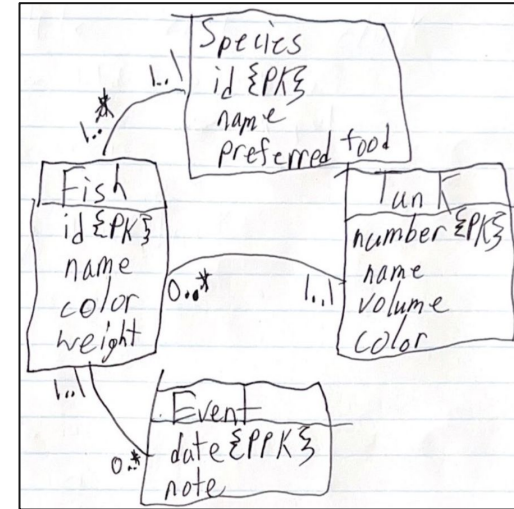 Species
id {PK}
name
preferred food
1..1
1..*
Fish
id {PK}
name
color
weight
Tank
number {PK}
name
volume
color
0..*
1..1
1..1
0..*
Event
date {PPK}
note